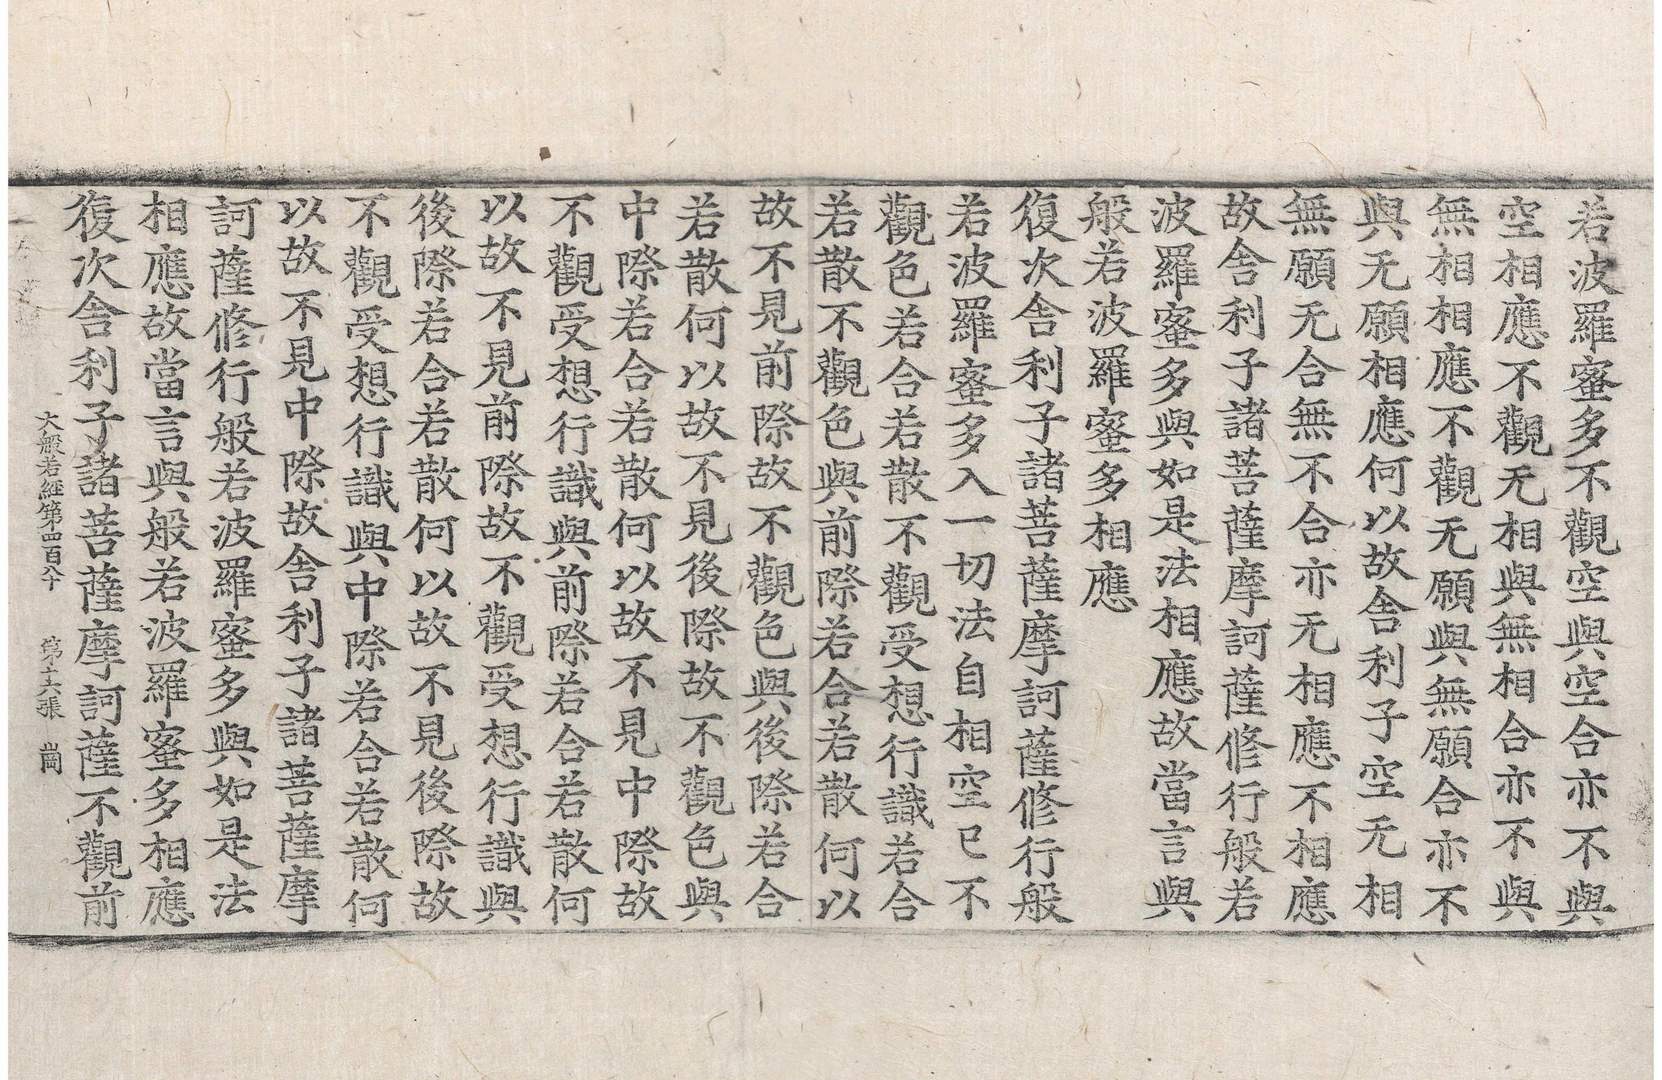 若波羅蜜多不觀空與空合亦不與
空相應不觀无相與無相合亦不與
無相相應不觀无願與無願合亦不
與无願相應何以故舍利子空无相
無願无合無不合亦无相應不相應
故舍利子諸菩薩摩訶薩修行般若
波羅蜜多與如是法相應故當言與
般若波羅蜜多相應
復次舍利子諸菩薩摩訶薩修行般
若波羅蜜多入一切法自相空已不
觀色若合若散不觀受想行識若合
若散不觀色與前際若合若散何以
故不見前際故不觀色與後際若合
若散何以故不見後際故不觀色與
中際若合若散何以故不見中際故
不觀受想行識與前際若合若散何
以故不見前際故不觀受想行識與
後際若合若散何以故不見後際故
不觀受想行識與中際若合若散何
以故不見中際故舍利子諸菩薩摩
訶薩修行般若波羅蜜多與如是法
相應故當言與般若波羅蜜多相應
復次舍利子諸菩薩摩訶薩不觀前
大般若經第四百八十 第十六張 崗